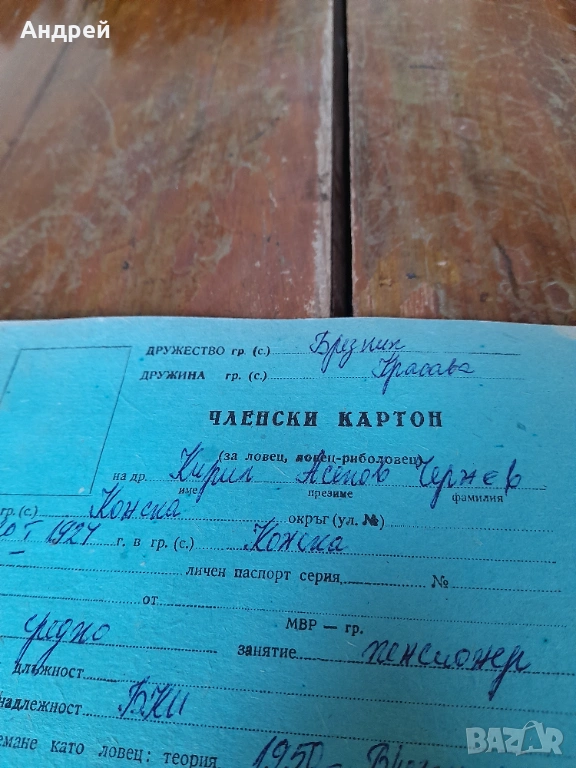 Андрей
ДРУЖЕСТВО гр. (с.) Брезник
ДРУЖИНА гр. (с.) Красава
ЧЛЕНСКИ КАРТОН
(за ловец, ловец-риболовец)
на др. Кирил Асенов Чержев
име презиме фамилия
гр. (с.) Конска окръг (ул. №)
1924 г. в гр. (с.) Конска
личен паспорт серия №
от МВР — гр.
средно занятие пенсионер
длъжност
надлежност БКП
емане като ловец: теория 1950
BAZAR